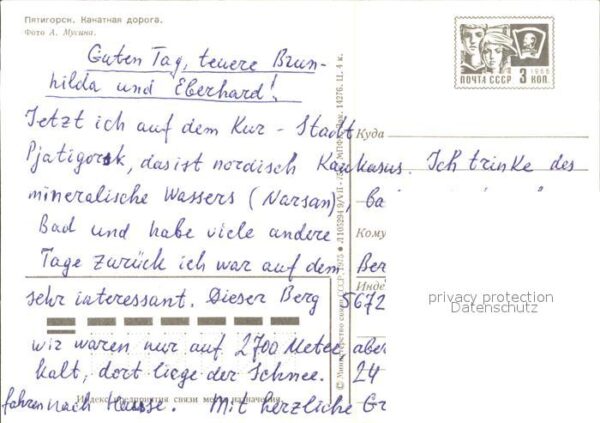 Пятигорск. Канатная дорога.
Фото А. Мусина.
ПОЧТА СССР 3 КОП.
1966
Guten Tag, teuere Brun-
hilda und Eberhard!
Jetzt ich auf dem Kur - Stadt
Куда
Pjatigorsk, das ist nordisch Kaukasus. Ich trinke des
mineralische Wassers (Narsan), ba
Bad und habe viele andere
Кому
Tage zurück ich war auf dem Ber
sehr interessant. Dieser Berg 5672
Инде
privacy protection
Datenschutz
wir waren nur auf 2700 Meter, aber
kalt, dort liege der Schnee. 24
Индекс предприятия связи места назначения
fahren nach Hause. Mit herzliche Gr
© Министерство связи СССР, 1975